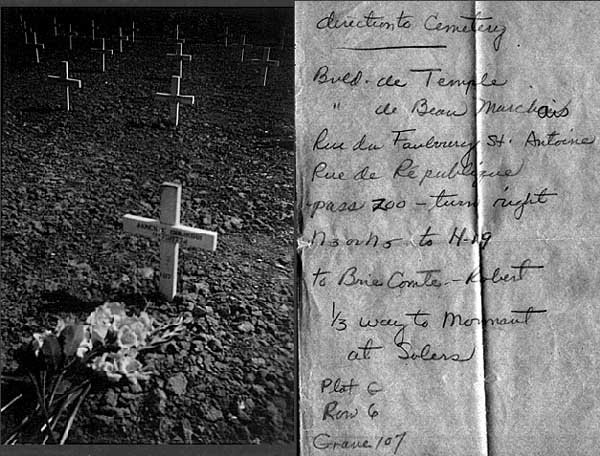 direction to Cemetery
Bvld. de Temple
" de Beau Marchais
Rue du Faubourg St. Antoine
Rue de République
pass zoo - turn right
to H-19
to Brie Comte - Robert
1/3 way to Mormant
at Solers
Plot G
Row 6
Grave 107